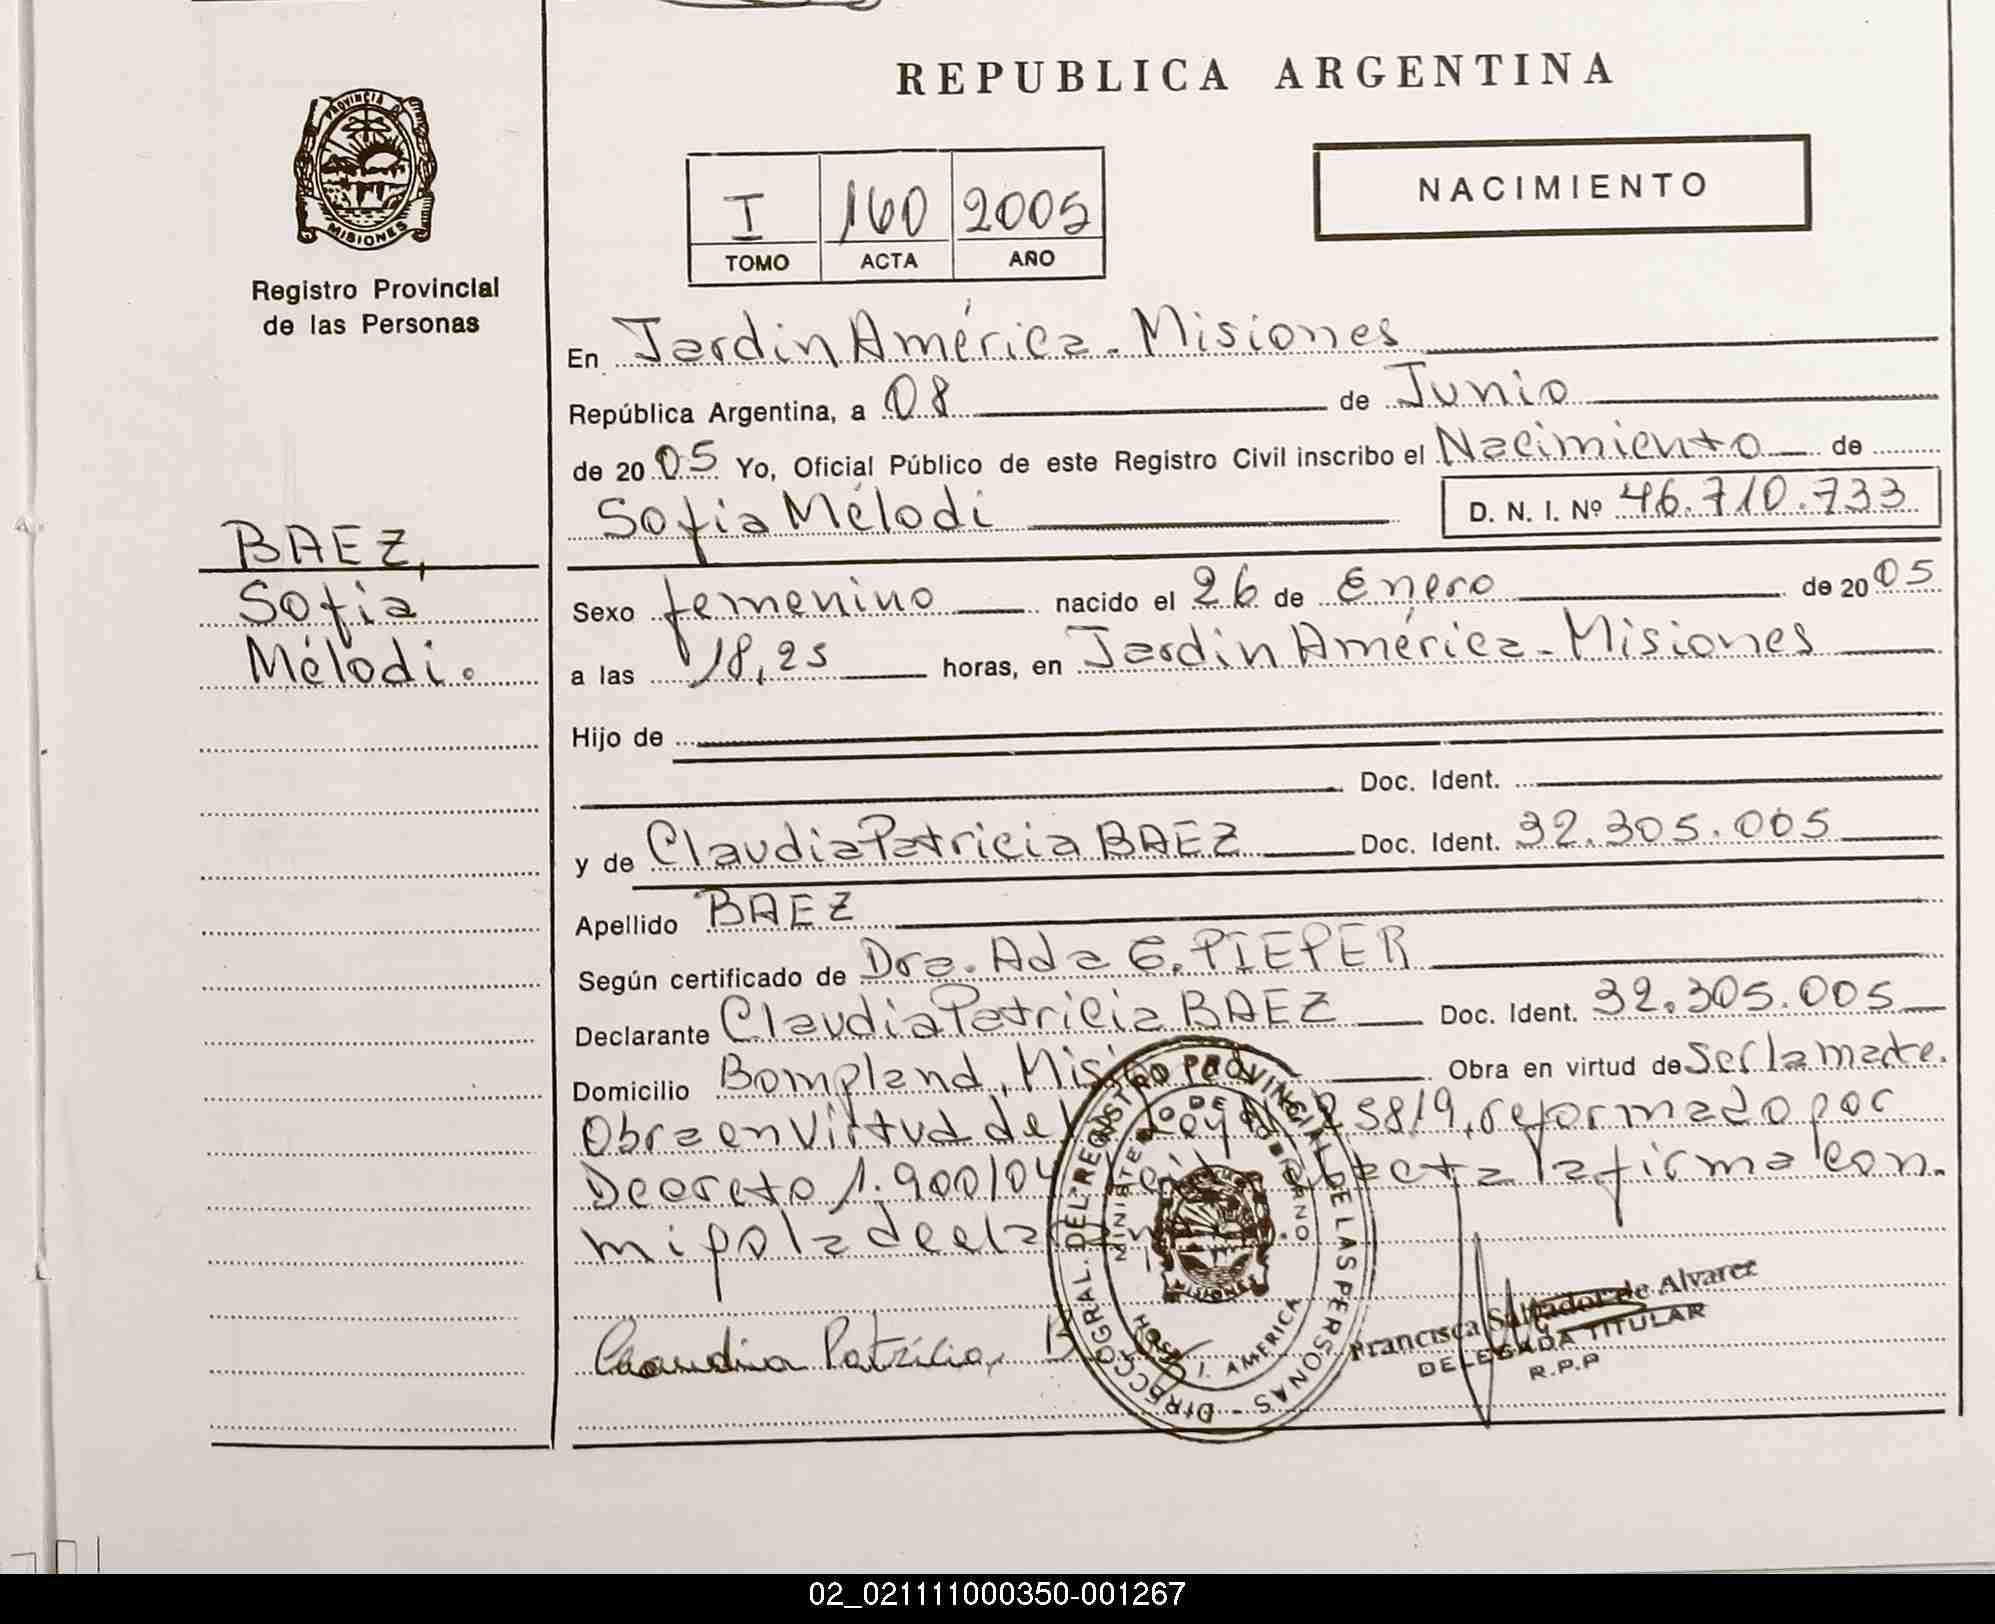 REPUBLICA ARGENTINA
PROVINCIA DE
MISIONES
Registro Provincial
de las Personas
I 160 2005
TOMO ACTA AÑO
NACIMIENTO
En Jardin América - Misiones
República Argentina, a 08 de Junio
de 2005 Yo, Oficial Público de este Registro Civil inscribo el Nacimiento de
Sofia Mélodi D. N. I. Nº 46.710.733
BAEZ,
Sofia
Mélodi.
Sexo femenino nacido el 26 de Enero de 2005
a las 18,25 horas, en Jardin América - Misiones
Hijo de
Doc. Ident.
y de Claudia Patricia BAEZ Doc. Ident. 32.305.005
Apellido BAEZ
Según certificado de Dra. Ada E. PIEPER
Declarante Claudia Patricia BAEZ Doc. Ident. 32.305.005
Domicilio Bompland, Obra en virtud de Ser la madre.
Obra en virtud de Ley 25819, reformado por
Decreto 1.900/04 la firma con
migo la decla
Claudia Patricia
DIRECC. GRAL. DEL REGISTRO PROVINCIAL DE LAS PERSONAS
MINISTERIO DE GOBIERNO
MISIONES
J. AMERICA
Francisca Salgador de Alvarez
DELEGADA TITULAR
R.P.P
02_021111000350-001267